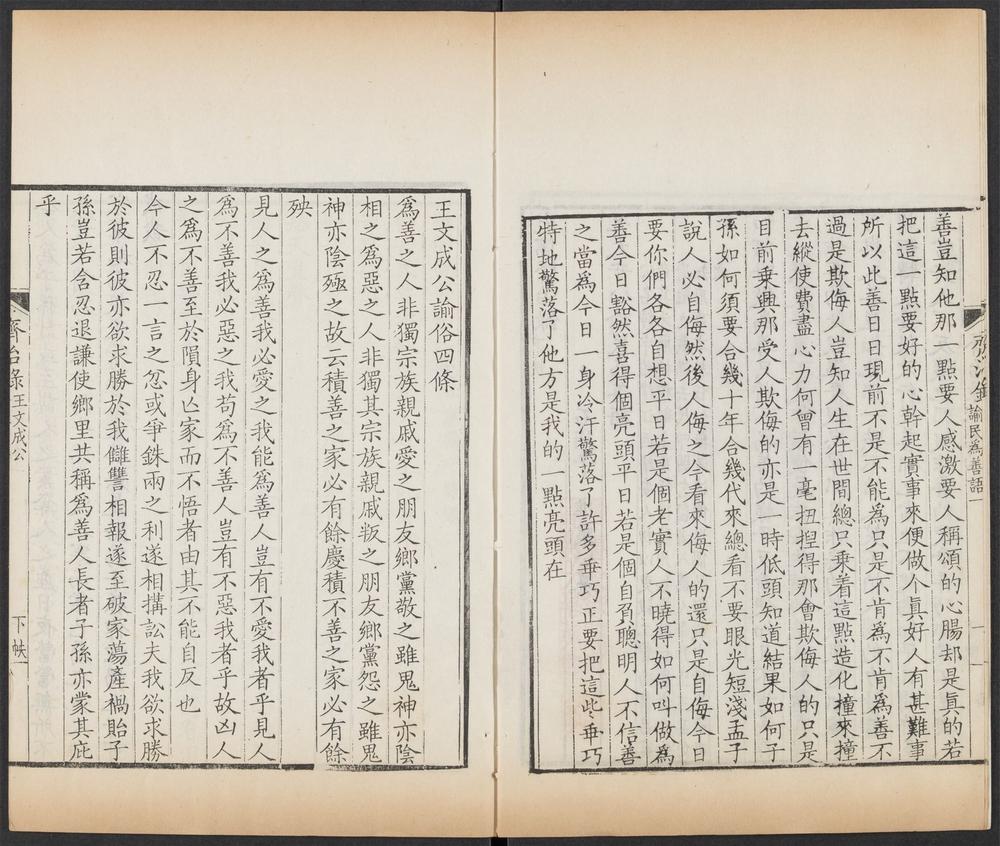 善豈知他那一點要人感激要人稱頌的心腸却是真的若
把這一點要好的心幹起實事來便做个眞好人有甚難事
所以此善日日現前不是不能為只是不肯為不肯爲善不
過是欺侮人豈知人生在世間總只乗着這點造化撞來撞
去縱使費盡心力何曾有一毫扭揑得那會欺侮人的只是
目前乗興那受人欺侮的亦是一時低頭知道結果如何子
孫如何須要合幾十年合幾代來總看不要眼光短淺孟子
說人必自侮然後人侮之今看來侮人的還只是自侮今日
要你們各各自想平日若是個老實人不曉得如何叫做為
善今日豁然喜得個亮頭平日若是個自負聰明人不信善
之當為今日一身冷汗驚落了許多乖巧正要把這些乖巧
特地驚落了他方是我的一點亮頭在
諭民為善語
王文成公諭俗四條
爲善之人非獨宗族親戚愛之朋友鄉黨敬之雖鬼神亦陰
相之爲惡之人非獨其宗族親戚叛之朋友鄉黨怨之雖鬼
神亦陰殛之故云積善之家必有餘慶積不善之家必有餘
殃
見人之爲善我必愛之我能爲善人豈有不愛我者乎見人
爲不善我必惡之我苟爲不善人豈有不惡我者乎故凶人
之爲不善至於隕身亡家而不悟者由其不能自反也
今人不忍一言之忿或爭銖兩之利遂相搆訟夫我欲求勝
於彼則彼亦欲求勝於我讎讐相報遂至破家蕩產禍貽子
孫豈若含忍退謙使鄉里共稱爲善人長者子孫亦蒙其庇
乎
齊治錄王文成公
下帙